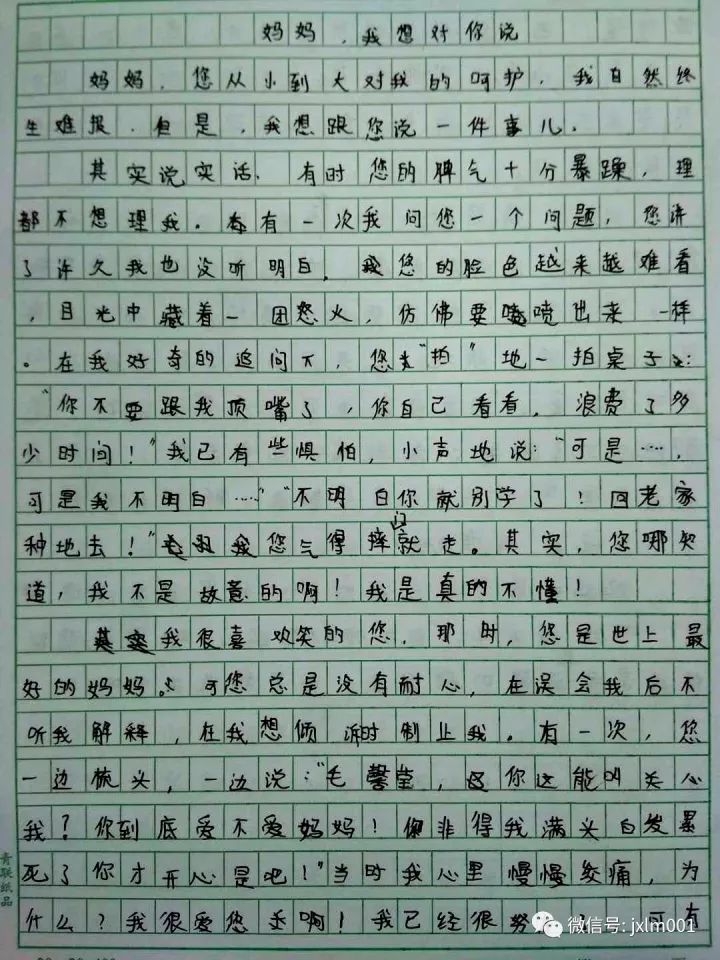 妈妈，我想对你说
妈妈，您从小到大对我的呵护，我自然终
生难报．但是，我想跟您说一件事儿．
其实说实话．有时您的脾气十分暴躁，理
都不想理我。有一次我问您一个问题，您讲
了许久我也没听明白．您的脸色越来越难看
，目光中藏着一团怒火，仿佛要喷出来一样
。在我好奇的追问下，您"拍"地一拍桌子：
"你不要跟我顶嘴了，你自己看看．浪费了多
少时间！"我已有些惧怕，小声地说："可是……，
可是我不明白……""不明白你就别学了！回老家
种地去！"您气得摔门就走。其实，您哪知
道，我不是故意的啊！我是真的不懂！
我很喜欢笑的您．那时，您是世上最
好的妈妈。可您总是没有耐心，在误会我后不
听我解释，在我想倾诉时制止我。有一次，您
一边梳头，一边说："毛馨莹，你这能叫关心
我？你到底爱不爱妈妈！非得我满头白发累
死了你才开心是吧！"当时我心里慢慢绞痛，为
什么？我很爱您啊！我已经很努 可有
青联纸品
微信号: jxlm001